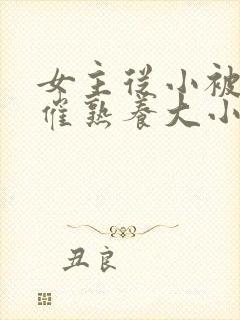 女主从小被
催熟养大小
丑良